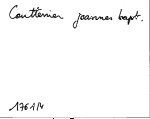 Couttenier joannes bapt.
1761/4